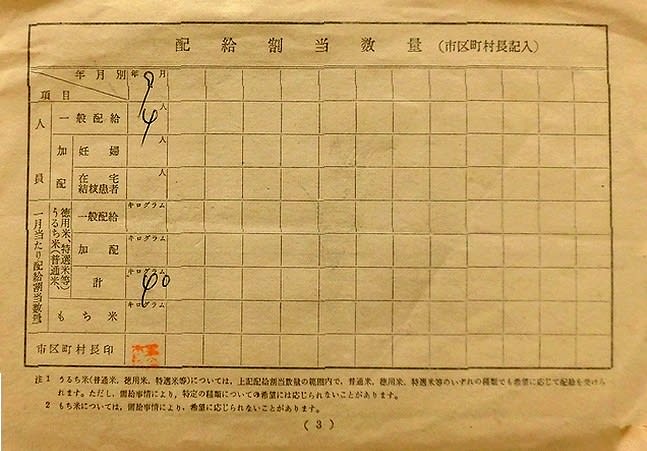 配給割当数量(市区町村長記入)
年月別 年 月
項目
人員
一般配給 人
4
加配
妊婦 人
在宅結核患者 人
一月当たり配給割当数量
うるち米(普通米、徳用米、特選米等)
一般配給 キログラム
加配 キログラム
計 キログラム
もち米 キログラム
市区町村長印
注1 うるち米(普通米、徳用米、特選米等)については、上記配給割当数量の範囲内で、普通米、徳用米、特選米等のいずれの種類でも希望に応じて配給を受けら
れます。ただし、需給事情により、特定の種類についての希望には応じられないことがあります。
2 もち米については、需給事情により、希望に応じられないことがあります。
(3)